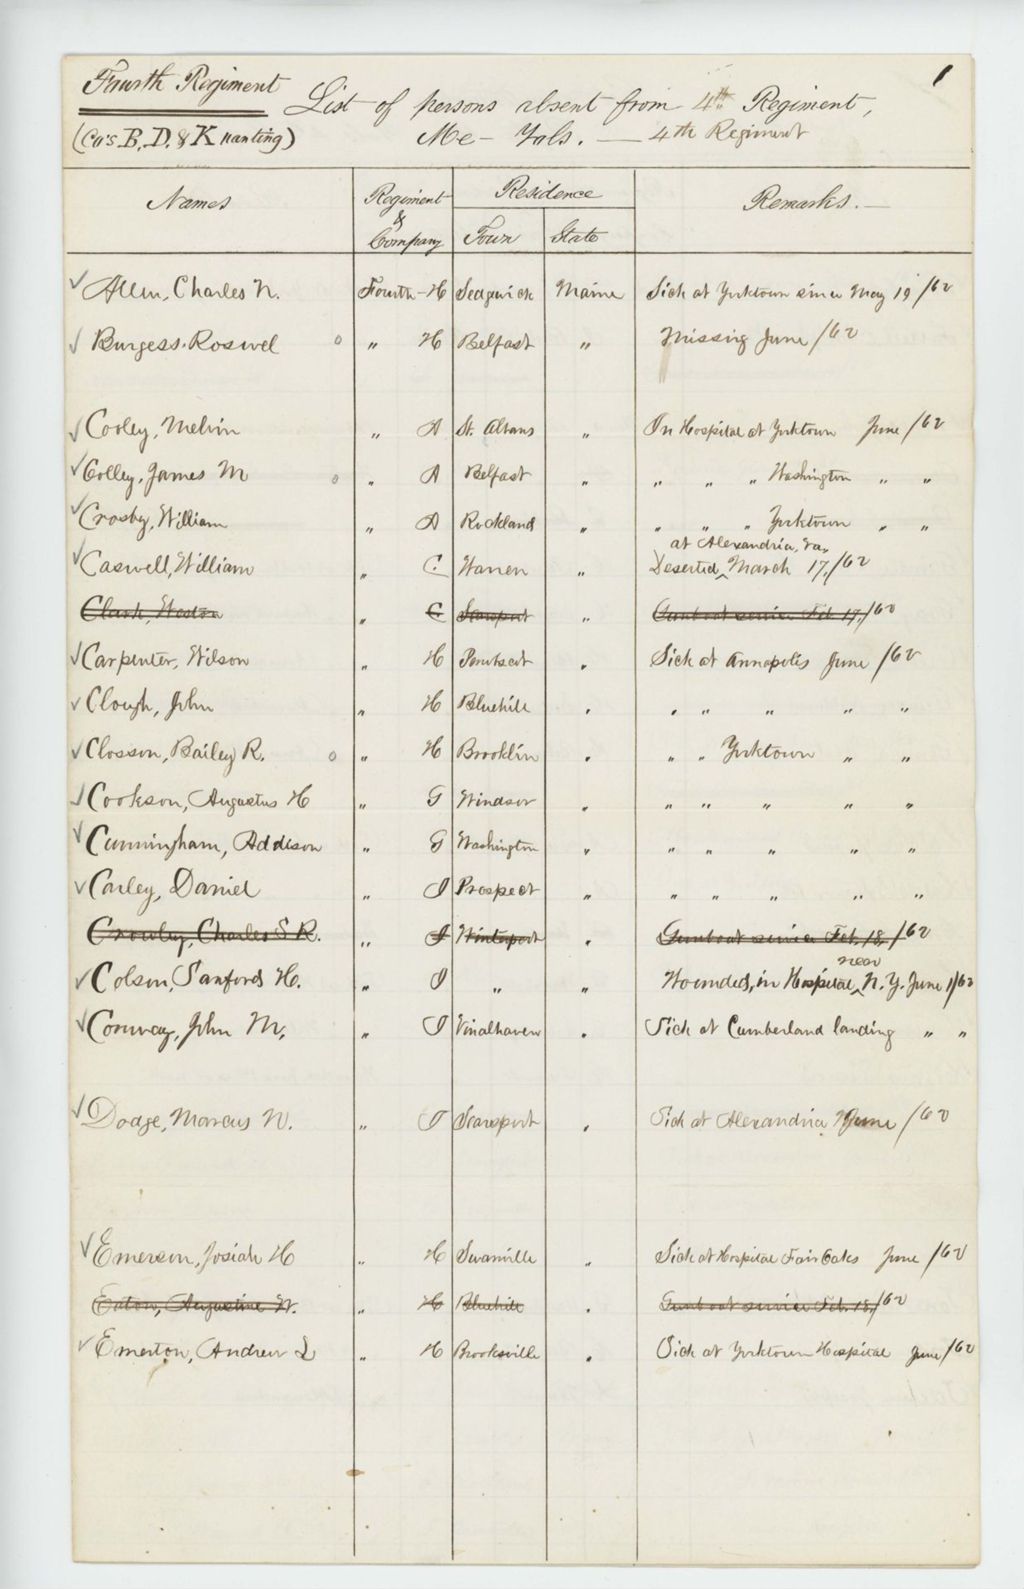 1
Fourth Regiment
List of persons absent from 4th Regiment,
(Co's. B, D, & K wanting)
Me- Vols. — 4th Regiment
Names Regiment & Company Residence Town State Remarks. —
✓ Allen, Charles N. Fourth - H Sedgwick Maine Sick at Yorktown since May 19 /62
✓ Burgess. Roswel o " H Belfast " Missing June /62
✓ Cooley, Melvin " A St. Albans " In Hospital at Yorktown June /62
✓ Colley, James M o " A Belfast " " " " Washington " "
✓ Crosby, William " A Rockland " " " " Yorktown " "
at Alexandria, Va,
✓ Caswell, William " C. Warren " Deserted ^ March 17, /62
Clark, Weston " C Searsport " Gunboat service Feb 17, /62
✓ Carpenter, Wilson " H Penobscot " Sick at Annapolis June /62
✓ Clough, John " H Bluehill " " " " " "
✓ Closson, Bailey R. o " H Brooklin " " " Yorktown " "
✓ Cookson, Augustus H " G Windsor " " " " " "
✓ Cunningham, Addison " G Washington " " " " " "
✓ Carley, Daniel " I Prospect " " " " " "
Crowley, Charles S R. " I Winterport " Gunboat service Feb. 18, /62
near
✓ Colson, Sanford H. " I " " Wounded, in Hospital ^ N. Y. June 1/62
✓ Conway, John M, " I Vinalhaven " Sick at Cumberland landing " "
✓ Dodge, Marcus W. " I Searsport " Sick at Alexandria June /62
✓ Emerson, Josiah H " H Swanville " Sick at Hospital Fair Oaks June /62
Eaton, Augustine W. " H Bluehill " Gunboat service Feb. 18, /62
✓ Emerton, Andrew L " H Brooksville " Sick at Yorktown Hospital June /62